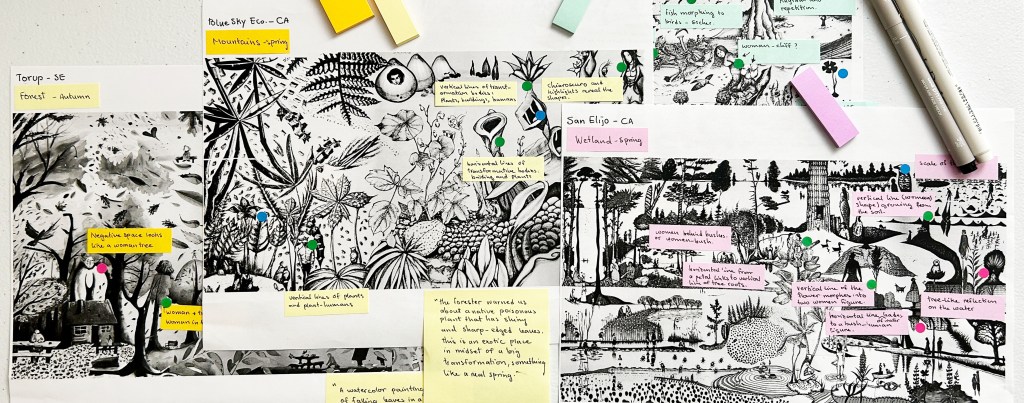 Torup - SE
Forest - Autumn
Negative space looks
like a woman tree.
woman + t
woman in t
Blue Sky Eco. - CA
Mountains - spring
vertical lines of transf-
ormation bodies:
Plants, buildings, humans
chiaroscuro and
highlights reveal the
shapes.
horizontal lines of
transformative bodies.
building and plants
vertical lines of plants
and plant-humans
"the forester warned us
about a native poisonous
plant that has shiny
and sharp-edged leaves.
this is an exotic place
in midset of a big
transformation, something
like a real spring."
"A watercolor painting
of falling leaves in a
fish morphing to
birds - Escher.
repetition.
woman-cliff?
San Elijo - CA
Wetland - spring
scale of
vertical line (woman
shape) growing from
the soil.
women behind bushes.
or women-bush.
horizontal line from
a petal links to vertical
line of tree roots.
vertical line of the
flower morphes into
two women figure.
horizontal line fades
of water
to a bush-human
figure.
tree-like reflection
on the water